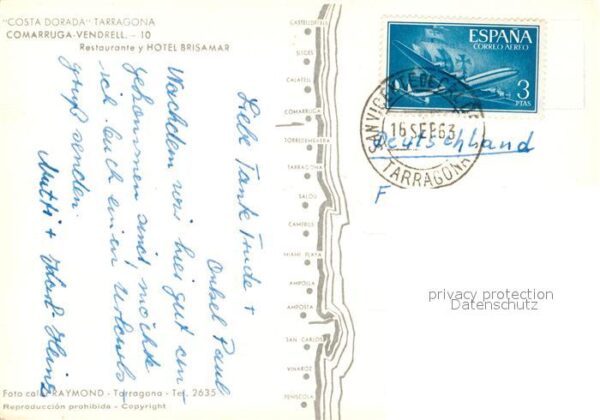 "COSTA DORADA" TARRAGONA
COMARRUGA-VENDRELL. - 10
Restaurante y HOTEL BRISAMAR
Liebe Tante Trude +
Onkel Paul
Nachdem wir hier gut an-
gekommen sind, möchte
ich Euch einen Urlaubs-
gruß senden.
Mutti + Karl-Heinz
Foto color RAYMOND - Tarragona - Tel. 2635
Reproducción prohibida - Copyright
CASTELLDEFELS
SITGES
CALAFELL
COMARRUGA
TORREDEMBARRA
TARRAGONA
SALOU
CAMBRILS
MIAMI PLAYA
AMPOLLA
AMPOSTA
SAN CARLOS
VINAROZ
PEÑISCOLA
ESPAÑA
CORREO AEREO
3
PTAS
SAN VICENTE DE CALDERS
16 SEP 63
TARRAGONA
Deutschland
F
privacy protection
Datenschutz